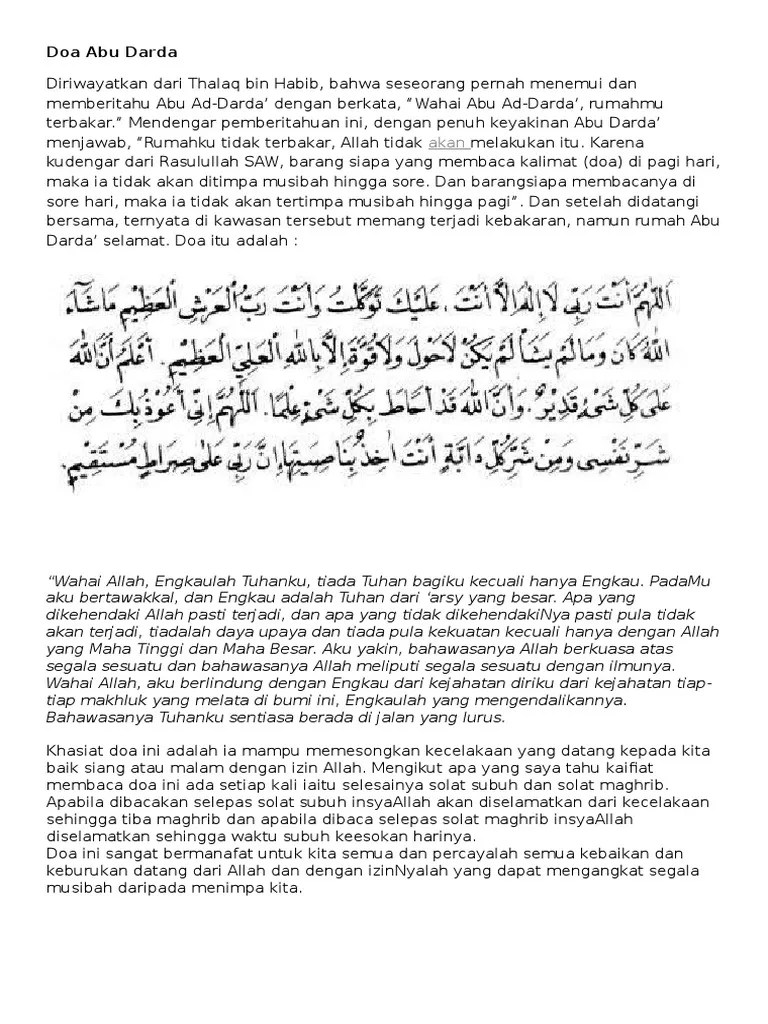 Doa Abu Darda
Diriwayatkan dari Thalaq bin Habib, bahwa seseorang pernah menemui dan
memberitahu Abu Ad-Darda’ dengan berkata, “Wahai Abu Ad-Darda’, rumahmu
terbakar.” Mendengar pemberitahuan ini, dengan penuh keyakinan Abu Darda’
menjawab, “Rumahku tidak terbakar, Allah tidak akan melakukan itu. Karena
kudengar dari Rasulullah SAW, barang siapa yang membaca kalimat (doa) di pagi hari,
maka ia tidak akan ditimpa musibah hingga sore. Dan barangsiapa membacanya di
sore hari, maka ia tidak akan tertimpa musibah hingga pagi”. Dan setelah didatangi
bersama, ternyata di kawasan tersebut memang terjadi kebakaran, namun rumah Abu
Darda’ selamat. Doa itu adalah :
اَللّٰهُمَّ أَنْتَ رَبِّى لَا إِلٰهَ إِلَّا أَنْتَ، عَلَيْكَ تَوَكَّلْتُ وَأَنْتَ رَبُّ الْعَرْشِ الْعَظِيْمِ مَاشَآءَ
اللّٰهُ كَانَ وَمَا لَمْ يَشَأْ لَمْ يَكُنْ لَاحَوْلَ وَلَا قُوَّةَ إِلَّا بِاللّٰهِ الْعَلِيِّ الْعَظِيْمِ. أَعْلَمُ أَنَّ اللّٰهَ
عَلَى كُلِّ شَيْءٍ قَدِيْرٌ. وَأَنَّ اللّٰهَ قَدْ أَحَاطَ بِكُلِّ شَيْءٍ عِلْمًا. اَللّٰهُمَّ إِنِّى أَعُوْذُ بِكَ مِنْ
شَرِّ نَفْسِى وَمِنْ شَرِّ كُلِّ دَابَّةٍ أَنْتَ اٰخِذٌ بِنَاصِيَتِهَا إِنَّ رَبِّى عَلٰى صِرَاطٍ مُسْتَقِيْمٍ.
“Wahai Allah, Engkaulah Tuhanku, tiada Tuhan bagiku kecuali hanya Engkau. PadaMu
aku bertawakkal, dan Engkau adalah Tuhan dari ‘arsy yang besar. Apa yang
dikehendaki Allah pasti terjadi, dan apa yang tidak dikehendakiNya pasti pula tidak
akan terjadi, tiadalah daya upaya dan tiada pula kekuatan kecuali hanya dengan Allah
yang Maha Tinggi dan Maha Besar. Aku yakin, bahawasanya Allah berkuasa atas
segala sesuatu dan bahawasanya Allah meliputi segala sesuatu dengan ilmunya.
Wahai Allah, aku berlindung dengan Engkau dari kejahatan diriku dari kejahatan tiap-
tiap makhluk yang melata di bumi ini, Engkaulah yang mengendalikannya.
Bahawasanya Tuhanku sentiasa berada di jalan yang lurus.
Khasiat doa ini adalah ia mampu memesongkan kecelakaan yang datang kepada kita
baik siang atau malam dengan izin Allah. Mengikut apa yang saya tahu kaifiat
membaca doa ini ada setiap kali iaitu selesainya solat subuh dan solat maghrib.
Apabila dibacakan selepas solat subuh insyaAllah akan diselamatkan dari kecelakaan
sehingga tiba maghrib dan apabila dibaca selepas solat maghrib insyaAllah
diselamatkan sehingga waktu subuh keesokan harinya.
Doa ini sangat bermanafat untuk kita semua dan percayalah semua kebaikan dan
keburukan datang dari Allah dan dengan izinNyalah yang dapat mengangkat segala
musibah daripada menimpa kita.